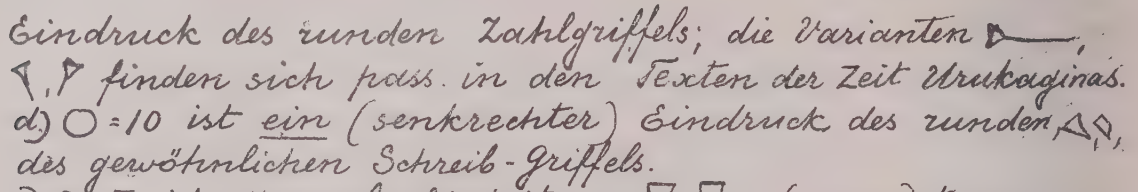 Eindruck des runden Zahlgriffels; die Varianten 𒁹,
, finden sich pass. in den Texten der Zeit Urukaginas.
d) ○=10 ist ein (senkrechter) Eindruck des runden, ,
des gewöhnlichen Schreib-Griffels.